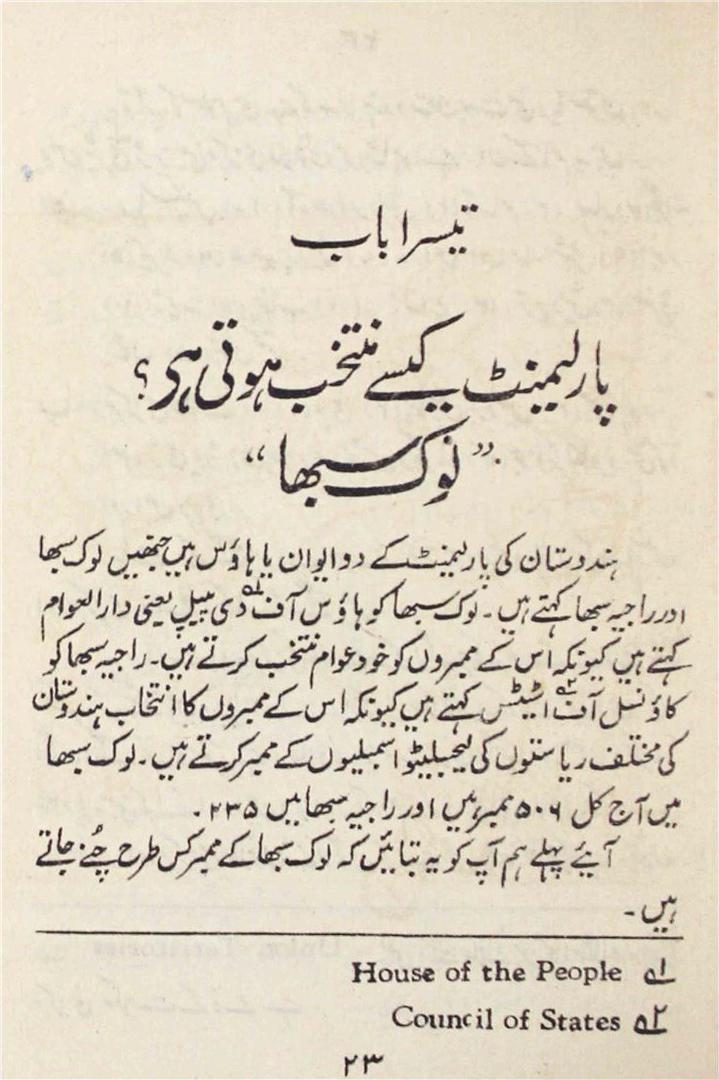 تیسرا باب
پارلیمنٹ کیسے منتخب ہوتی ہے؟
”لوک سبھا“
ہندوستان کی پارلیمنٹ کے دو ایوان یا ہاؤس ہیں جنھیں لوک سبھا
اور راجیہ سبھا کہتے ہیں۔ لوک سبھا کو ہاؤس آف دی پیپل۱؎ یعنی دارالعوام
کہتے ہیں کیونکہ اس کے ممبروں کو خود عوام منتخب کرتے ہیں۔ راجیہ سبھا کو
کاؤنسل آف اسٹیٹس۲؎ کہتے ہیں کیونکہ اس کے ممبروں کا انتخاب ہندوستان
کی مختلف ریاستوں کی لیجسلیٹو اسمبلیوں کے ممبر کرتے ہیں۔ لوک سبھا
میں آج کل ۵۰۶ ممبر ہیں اور راجیہ سبھا میں ۲۳۵۔
آیئے پہلے ہم آپ کو یہ بتائیں کہ لوک سبھا کے ممبر کس طرح چُنے جاتے
ہیں۔
۱؎ House of the People
۲؎ Council of States
۲۳